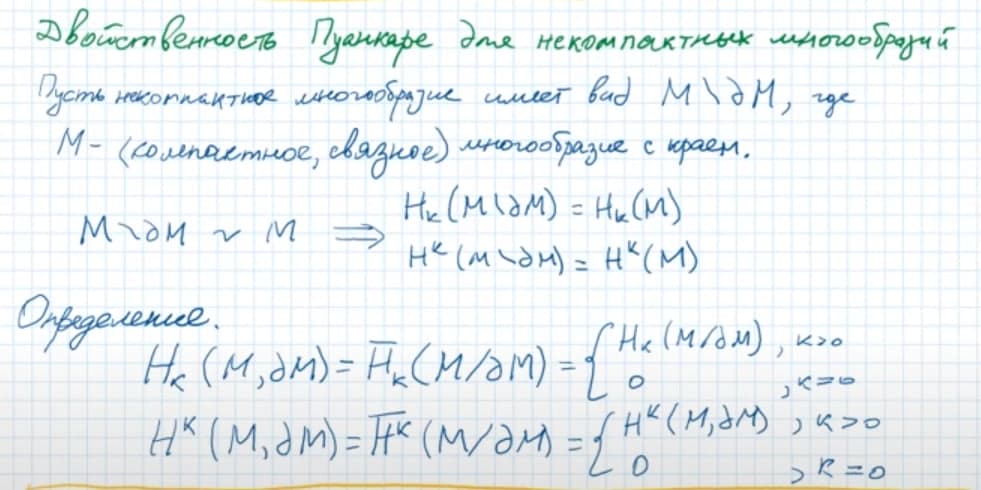 Двойственность Пуанкаре для некомпактных многообразий
Пусть некомпактное многообразие имеет вид M\∂M, где
M - (компактное, связное) многообразие с краем.
M\∂M ~ M ⟹ H_k(M\∂M) = H_k(M)
H^k(M\∂M) = H^k(M)
Определение.
H_k(M,∂M) = H̅_k(M/∂M) = { H_k(M/∂M), k>0
0, k=0
H^k(M,∂M) = H̅^k(M/∂M) = { H^k(M,∂M), k>0
0, k=0